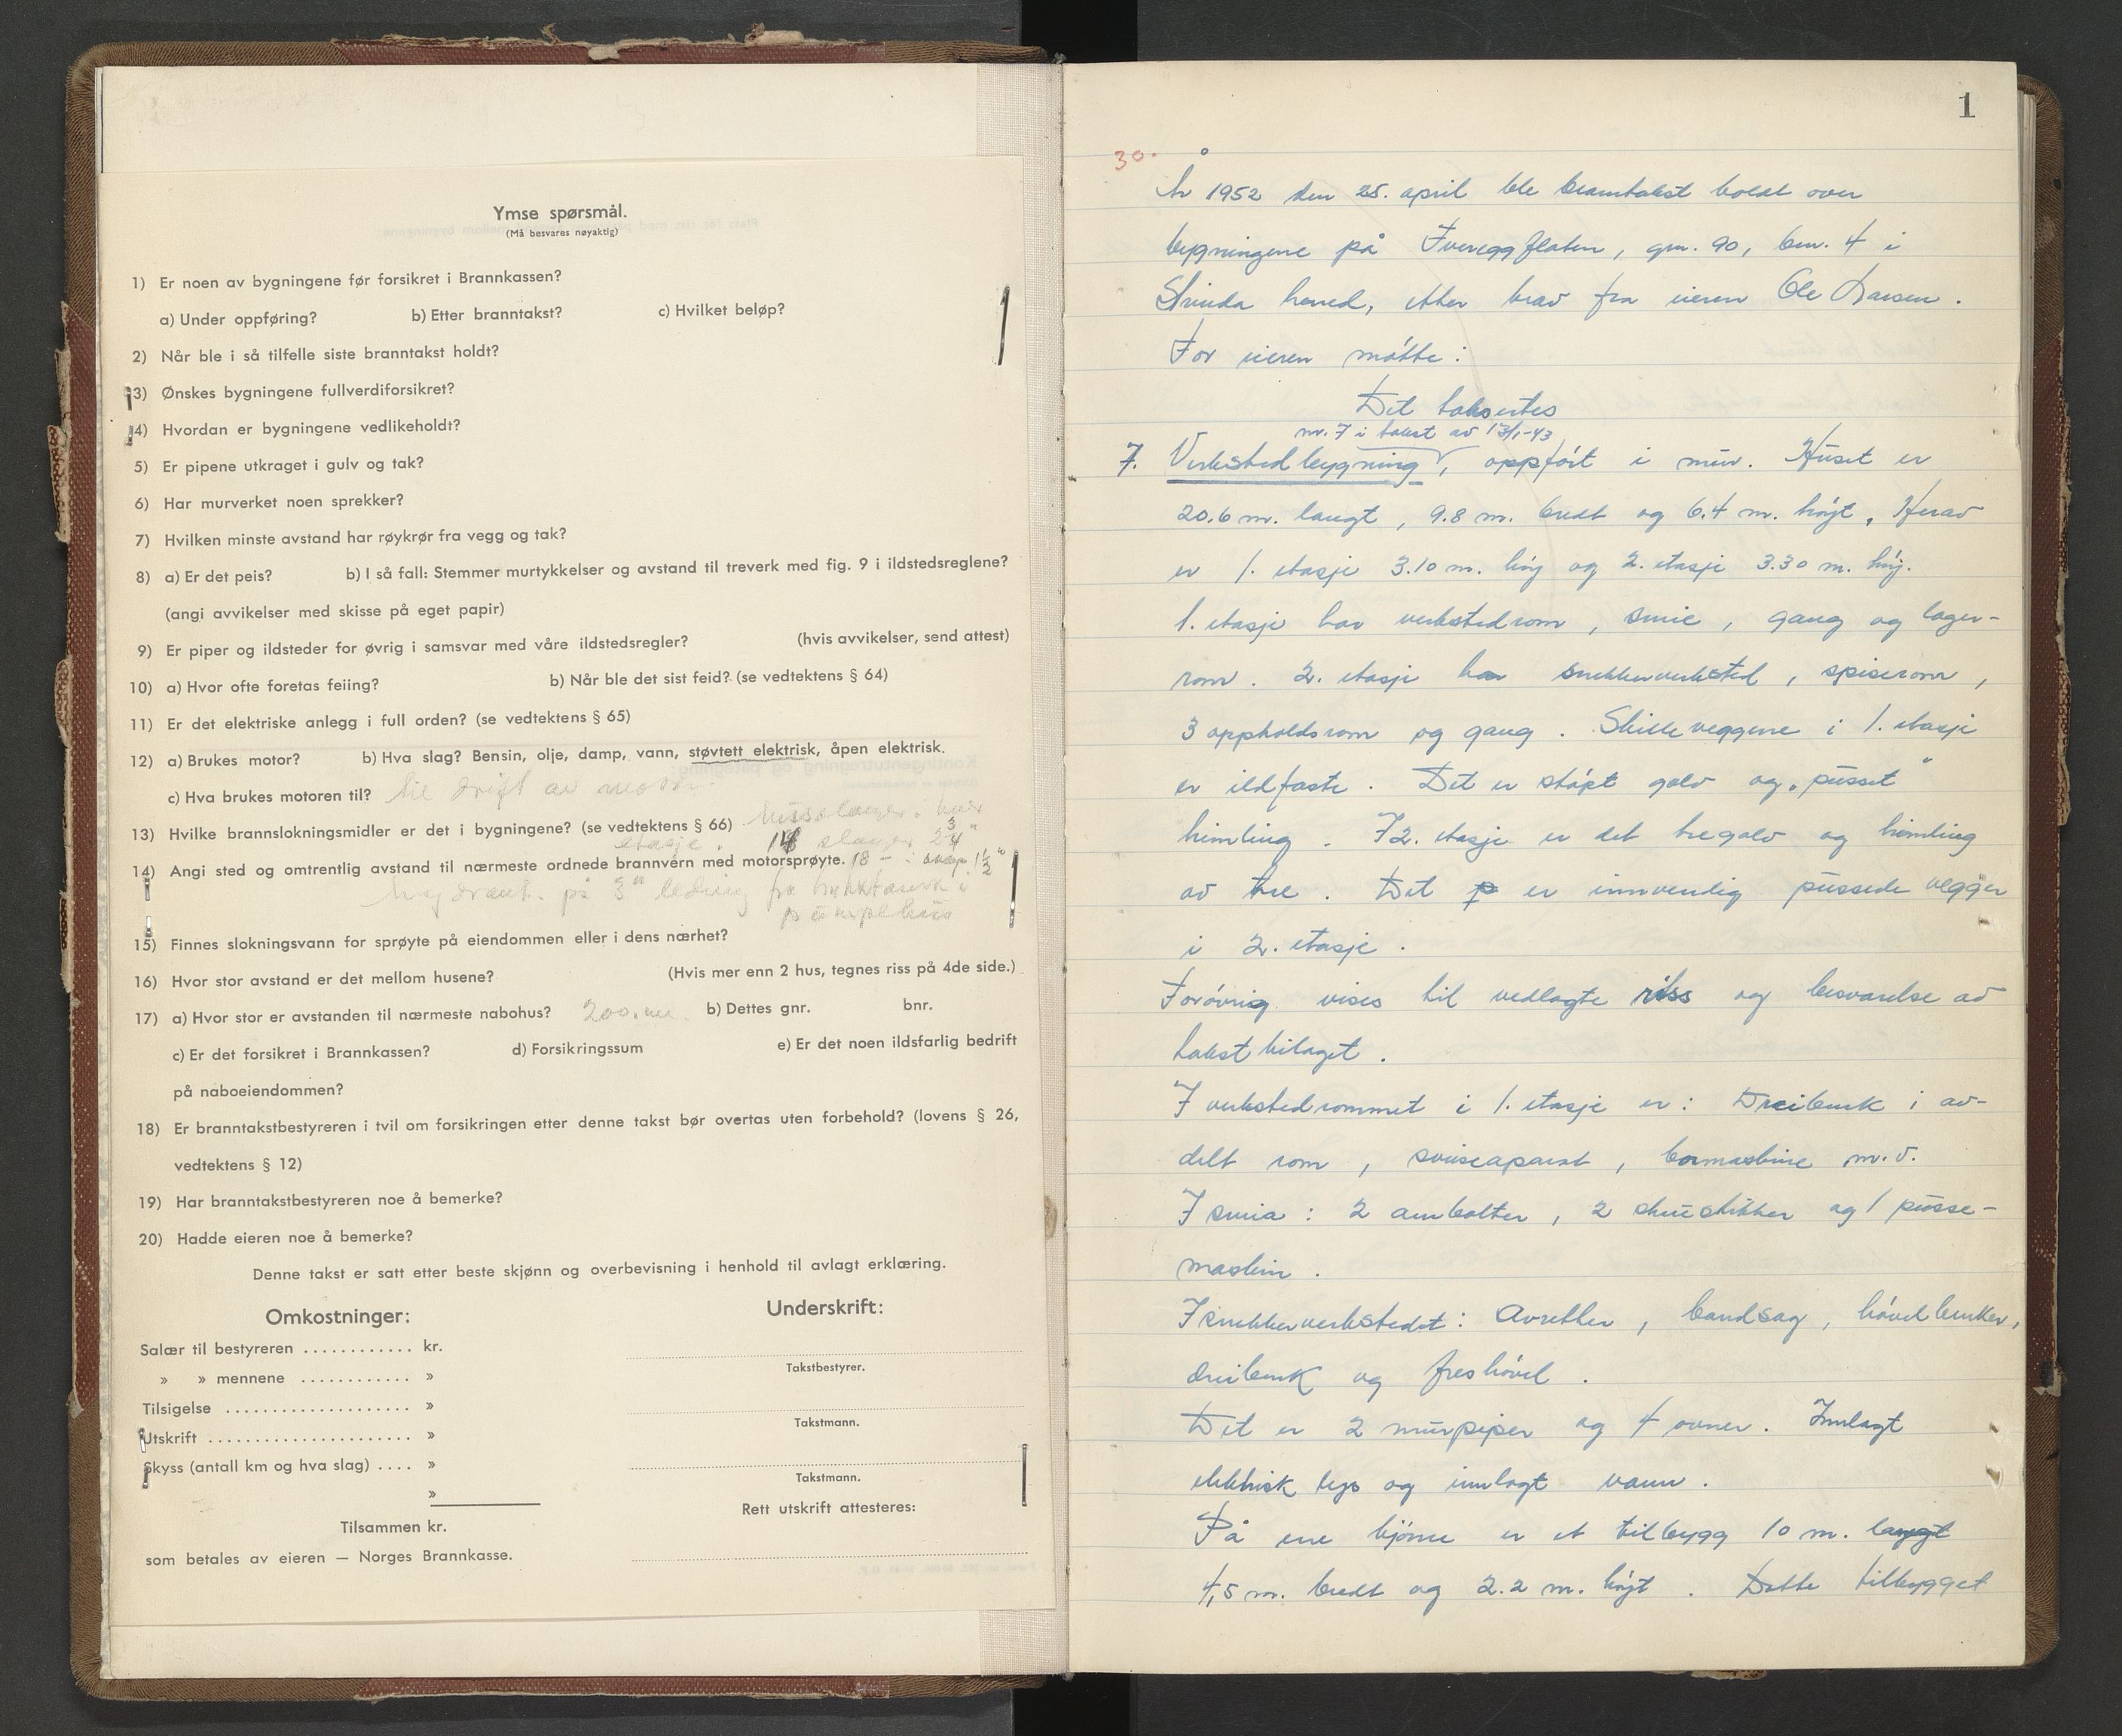 Ymse spørsmål.
(Må besvares nøyaktig)
1) Er noen av bygningene før forsikret i Brannkassen?
a) Under oppføring? b) Etter branntakst? c) Hvilket beløp?
2) Når ble i så tilfelle siste branntakst holdt?
3) Ønskes bygningene fullverdiforsikret?
4) Hvordan er bygningene vedlikeholdt?
5) Er pipene utkraget i gulv og tak?
6) Har murverket noen sprekker?
7) Hvilken minste avstand har røykrør fra vegg og tak?
8) a) Er det peis? b) I så fall: Stemmer murtykkelser og avstand til treverk med fig. 9 i ildstedsreglene?
(angi avvikelser med skisse på eget papir)
9) Er piper og ildsteder for øvrig i samsvar med våre ildstedsregler? (hvis avvikelser, send attest)
10) a) Hvor ofte foretas feiing? b) Når ble det sist feid? (se vedtektens § 64)
11) Er det elektriske anlegg i full orden? (se vedtektens § 65)
12) a) Brukes motor? b) Hva slag? Bensin, olje, damp, vann, støvtett elektrisk, åpen elektrisk.
c) Hva brukes motoren til? til drift av
13) Hvilke brannslokningsmidler er det i bygningene? (se vedtektens § 66) husslanger i hver
etasje. 18 slanger 2 3/4"
14) Angi sted og omtrentlig avstand til nærmeste ordnede brannvern med motorsprøyte. 18 - 1 1/2"
Hydrant. på 3" ledning fra i
pumpehus
15) Finnes slokningsvann for sprøyte på eiendommen eller i dens nærhet?
16) Hvor stor avstand er det mellom husene? (Hvis mer enn 2 hus, tegnes riss på 4de side.)
17) a) Hvor stor er avstanden til nærmeste nabohus? 200. m. b) Dettes gnr. bnr.
c) Er det forsikret i Brannkassen? d) Forsikringssum e) Er det noen ildsfarlig bedrift
på naboeiendommen?
18) Er branntakstbestyreren i tvil om forsikringen etter denne takst bør overtas uten forbehold? (lovens § 26,
vedtektens § 12)
19) Har branntakstbestyreren noe å bemerke?
20) Hadde eieren noe å bemerke?
Denne takst er satt etter beste skjønn og overbevisning i henhold til avlagt erklæring.
Omkostninger:
Salær til bestyreren ............ kr.
» » mennene ............ »
Tilsigelse .................... »
Utskrift ...................... »
Skyss (antall km og hva slag) .... »
»
Tilsammen kr.
som betales av eieren — Norges Brannkasse.
Underskrift:
Takstbestyrer.
Takstmann.
Takstmann.
Rett utskrift attesteres:
1
30.
År 1952 den 25. april ble branntakst holdt over
bygningene på Tvereggflaten, gnr. 90, bnr. 4 i
Strinda herred, etter krav fra eieren Ole Larsen.
For eieren møtte:
Det taksertes
nr. 7 i takst av 13/1-43
7. Verkstedbygning, oppført i mur. Huset er
20.6 m. langt, 9.8 m. bredt og 6.4 m. høyt. Herav
er 1. etasje 3.10 m. høy og 2. etasje 3.30 m. høy.
1. etasje har verkstedrom, smie, gang og lager-
rom. 2. etasje har snekkerverksted, spiserom,
3 oppholdsrom og gang. Skilleveggene i 1. etasje
er ildfaste. Det er støpt golv og „pusset"
himling. I 2. etasje er det tregolv og himling
av tre. Det er innvendig pussede vegger
i 2. etasje.
Forøvrig vises til vedlagte riss og besvarelse av
takstbilaget.
I verkstedrommet i 1. etasje er: Dreibenk i av-
delt rom, sveiseapparat, bormaskine m.v.
I smia: 2 ambolter, 2 skrustikker og 1 pusse-
maskin.
I snekkerverkstedet: Avretter, bandsag, høvelbenker,
dreibenk og freshøvel.
Det er 2 murpiper og 4 ovner. Innlagt
elektrisk lys og innlagt vann.
På ene hjørne er et tilbygg 10 m. langt
4,5 m. bredt og 2.2 m. høyt. Dette tilbygget